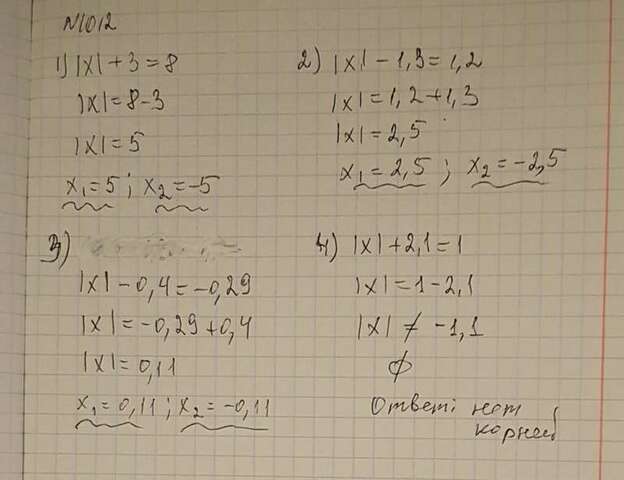 N1012
1) |x| + 3 = 8
|x| = 8 - 3
|x| = 5
x₁ = 5 ; x₂ = -5
2) |x| - 1,3 = 1,2
|x| = 1,2 + 1,3
|x| = 2,5
x₁ = 2,5 ; x₂ = -2,5
3)
|x| - 0,4 = -0,29
|x| = -0,29 + 0,4
|x| = 0,11
x₁ = 0,11 ; x₂ = -0,11
4) |x| + 2,1 = 1
|x| = 1 - 2,1
|x| ≠ -1,1
∅
Ответ: нет
корней